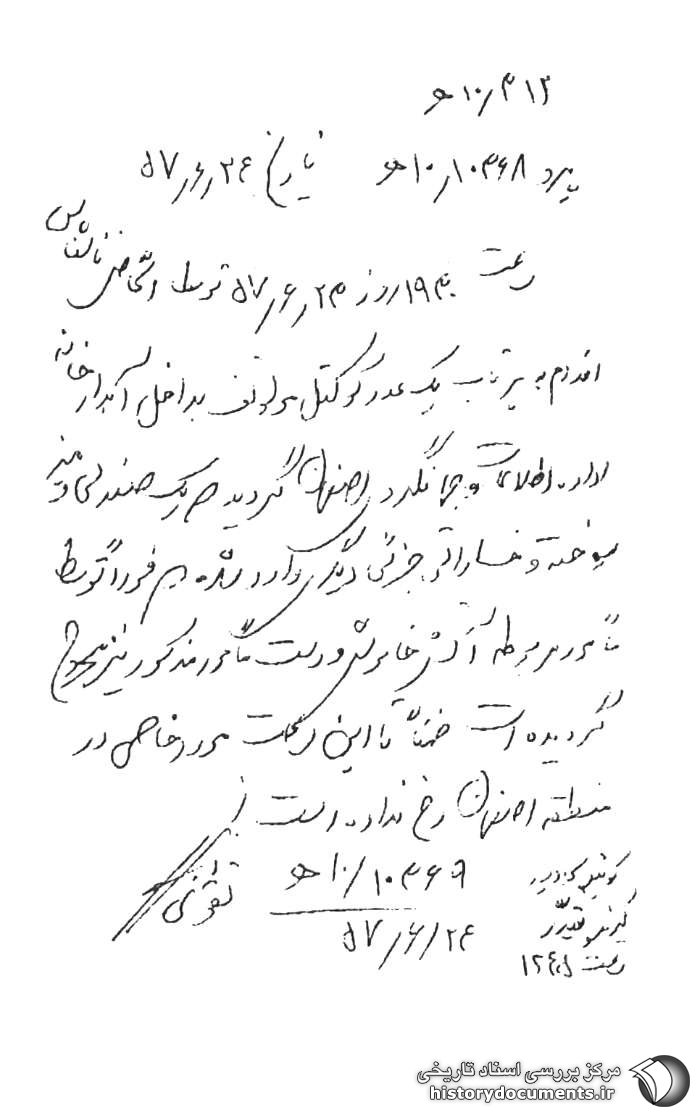 ۳۱۲/۱۰ ه‍
پیرو ۱۰۴۶۸/۱۰ ه‍ تاریخ ۵۷/۶/۲۴
ساعت ۱۹۴۰ روز ۵۷/۶/۲۳ توسط اشخاص ناشناس
اقدام به پرتاب یک عدد کوکتل مولوتف بداخل آبدارخانه
اداره اطلاعات و جهانگردی اصفهان گردید یک صندلی و میز
سوخته و خسارات جزئی دیگری وارد شده فوراً توسط
مأمور مربوطه آتش خاموش و دست مأمور مذکور نیز مجروح
گردیده است ضمناً تا این ساعت مورد خاصی در
منطقه اصفهان رخ نداده است
تقوائی
۱۰۴۶۹/۱۰ ه‍
۵۷/۶/۲۴
گیرنده
ساعت
مرکز بررسی اسناد تاریخی
historydocuments.ir